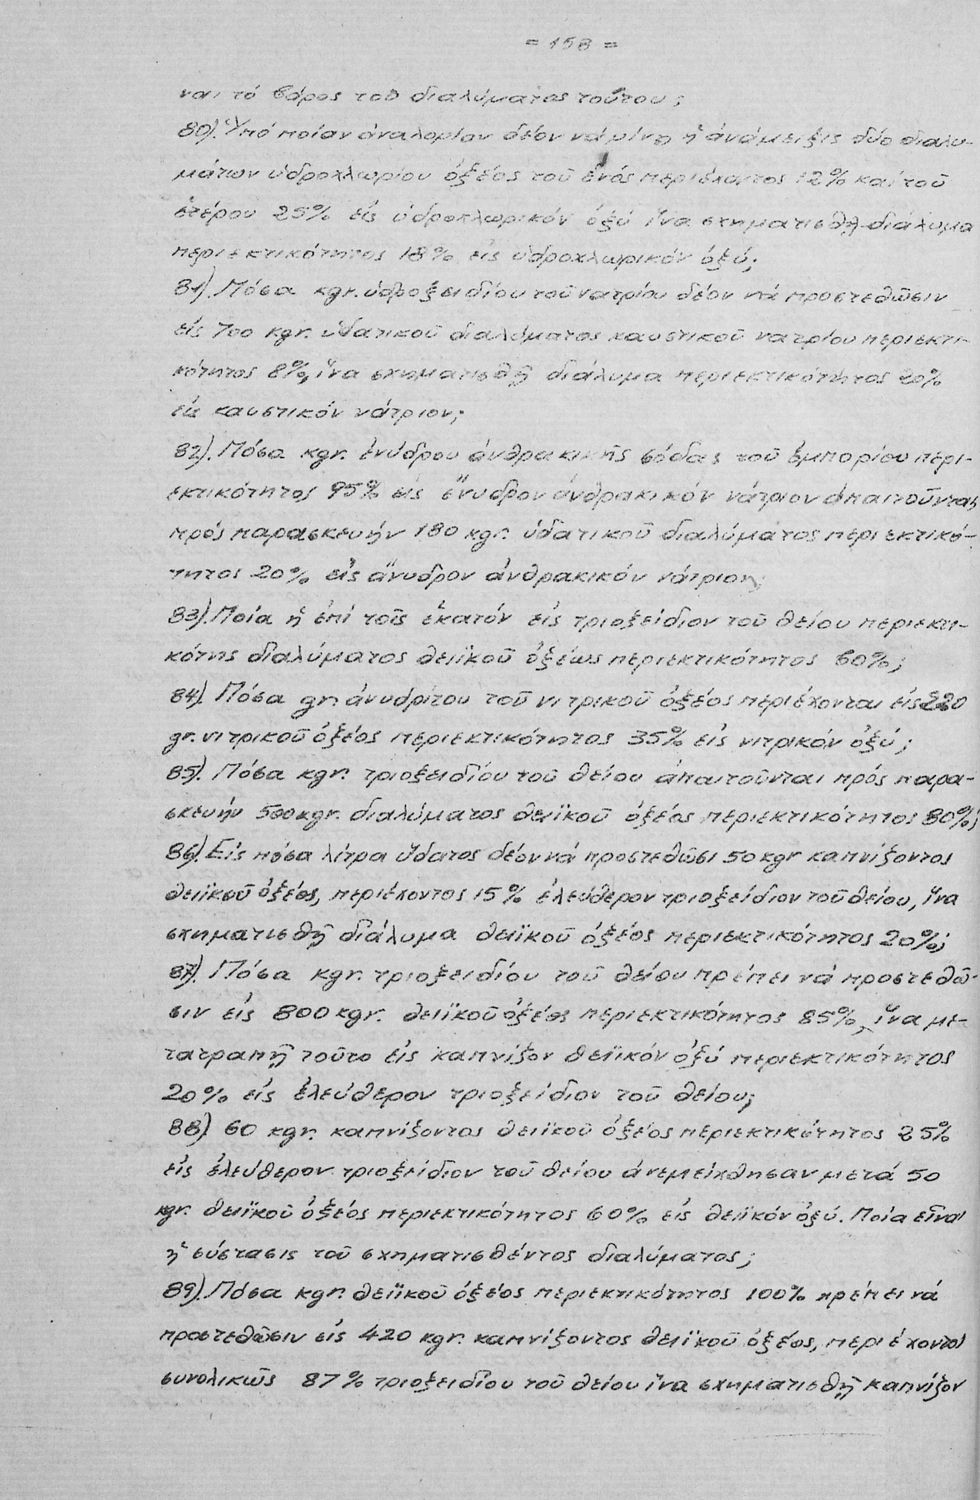 = 158 =
και τό βάρος τοῦ διαλύματος τούτου;
80). Ὑπό ποίαν ἀναλογίαν δέον νά γίνῃ ἡ ἀνάμειξις δύο διαλυ-
μάτων ὑδροχλωρίου ὀξέος τοῦ ἑνός περιέχοντος 12% καί τοῦ
ἑτέρου 25% εἰς ὑδροχλωρικόν ὀξύ ἵνα σχηματισθῇ διάλυμα
περιεκτικότητος 18% εἰς ὑδροχλωρικόν ὀξύ;
81). Πόσα kgr. ὑδροξειδίου τοῦ νατρίου δέον νά προστεθῶσιν
εἰς 700 kgr. ὑδατικοῦ διαλύματος καυστικοῦ νατρίου περιεκτι-
κότητος 8%, ἵνα σχηματισθῇ διάλυμα περιεκτικότητος 20%
εἰς καυστικόν νάτριον;
82). Πόσα kgr. ἐνύδρου ἀνθρακικῆς σόδας τοῦ ἐμπορίου περι-
εκτικότητος 95% εἰς ἔνυδρον ἀνθρακικόν νάτριον ἀπαιτοῦνται
πρός παρασκευήν 180 kgr. ὑδατικοῦ διαλύματος περιεκτικό-
τητος 20% εἰς ἄνυδρον ἀνθρακικόν νάτριον;
83). Ποία ἡ ἐπί τοῖς ἑκατόν εἰς τριοξείδιον τοῦ θείου περιεκτι-
κότης διαλύματος θειϊκοῦ ὀξέως περιεκτικότητος 60%;
84). Πόσα gr. ἀνυδρίτου τοῦ νιτρικοῦ ὀξέος περιέχονται εἰς 220
gr. νιτρικοῦ ὀξέος περιεκτικότητος 35% εἰς νιτρικόν ὀξύ;
85). Πόσα kgr. τριοξειδίου τοῦ θείου ἀπαιτοῦνται πρός παρα-
σκευήν 500 kgr. διαλύματος θειϊκοῦ ὀξέος περιεκτικότητος 80%;
86). Εἰς πόσα λίτρα ὕδατος δέον νά προστεθῶσι 50 kgr καπνίζοντος
θειϊκοῦ ὀξέος, περιέχοντος 15% ἐλεύθερον τριοξείδιον τοῦ θείου, ἵνα
σχηματισθῇ διάλυμα θειϊκοῦ ὀξέος περιεκτικότητος 20%;
87). Πόσα kgr. τριοξειδίου τοῦ θείου πρέπει νά προστεθῶ-
σιν εἰς 800 kgr. θειϊκοῦ ὀξέος περιεκτικότητος 85%, ἵνα με-
τατραπῇ τοῦτο εἰς καπνίζον θειϊκόν ὀξύ περιεκτικότητος
20% εἰς ἐλεύθερον τριοξείδιον τοῦ θείου;
88). 60 kgr. καπνίζοντος θειϊκοῦ ὀξέος περιεκτικότητος 25%
εἰς ἐλεύθερον τριοξείδιον τοῦ θείου ἀνεμείχθησαν μετά 50
kgr. θειϊκοῦ ὀξέος περιεκτικότητος 60% εἰς θειϊκόν ὀξύ. Ποία εἶναι
ἡ σύστασις τοῦ σχηματισθέντος διαλύματος;
89). Πόσα kgr. θειϊκοῦ ὀξέος περιεκτικότητος 100% πρέπει νά
προστεθῶσιν εἰς 420 kgr. καπνίζοντος θειϊκοῦ ὀξέος, περιέχοντος
συνολικῶς 87% τριοξειδίου τοῦ θείου ἵνα σχηματισθῇ καπνίζον